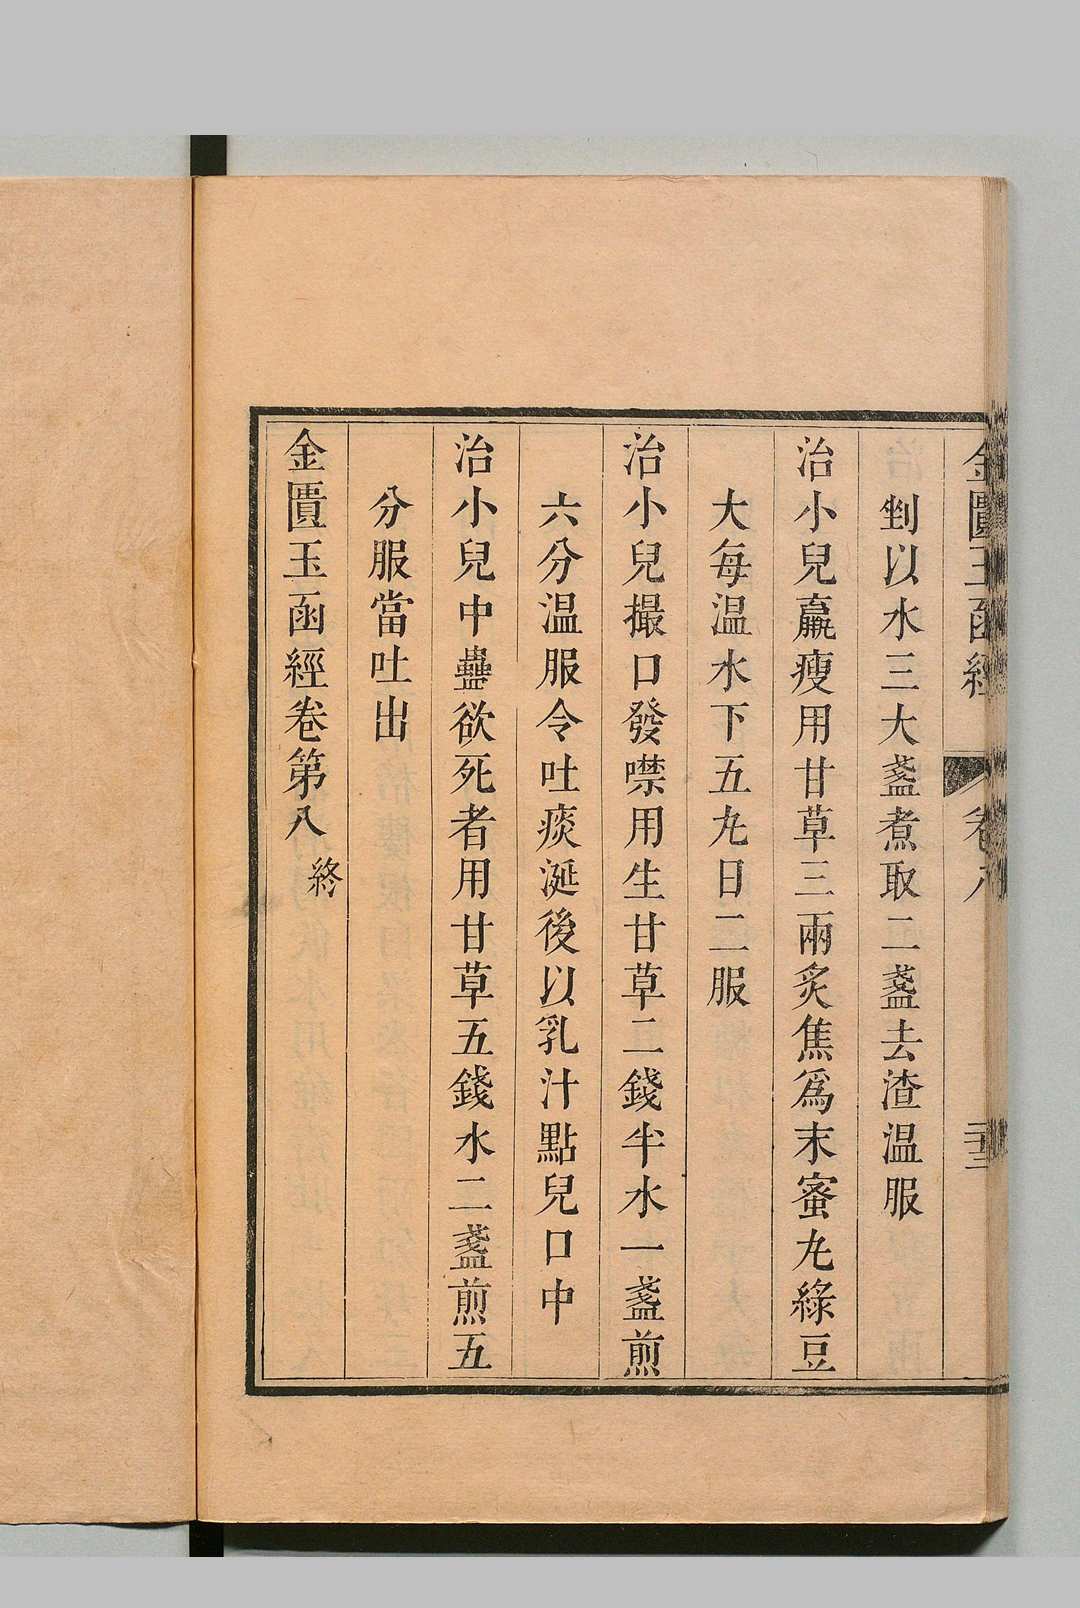 金匱玉函經 卷八 二十三
剉以水三大盞煮取二盞去渣温服
治小兒羸瘦用甘草三兩炙焦爲末蜜丸綠豆
大每温水下五丸日二服
治小兒撮口發噤用生甘草二錢半水一盞煎
六分温服令吐痰涎後以乳汁點兒口中
治小兒中蠱欲死者用甘草五錢水二盞煎五
分服當吐出
金匱玉函經卷第八 終